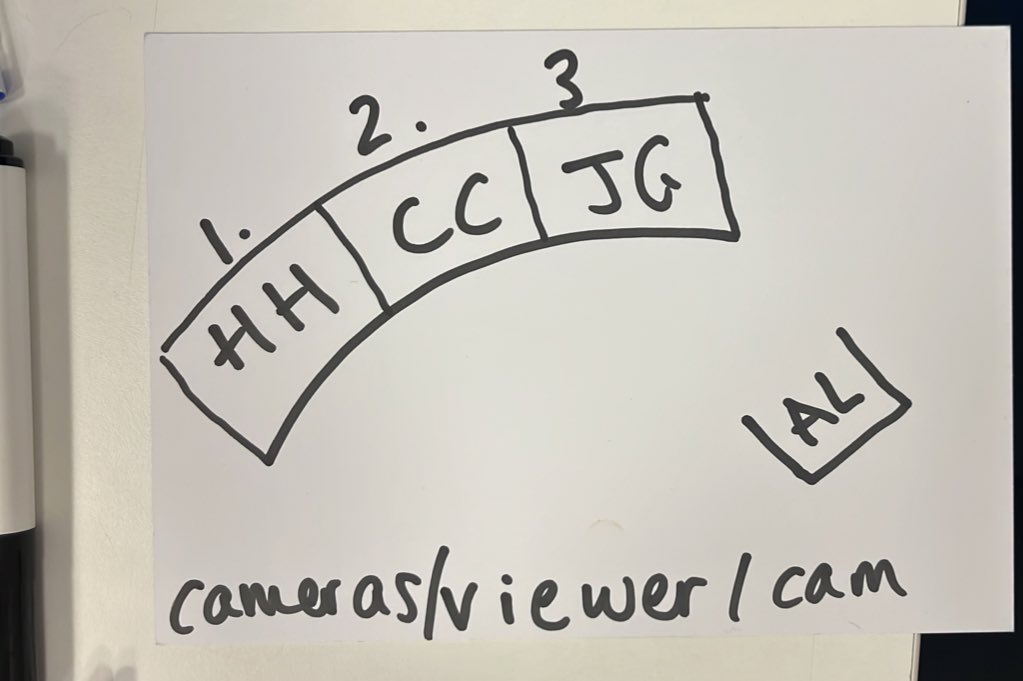 1. 2. 3
HH CC JG
AL
cameras/viewer/cam